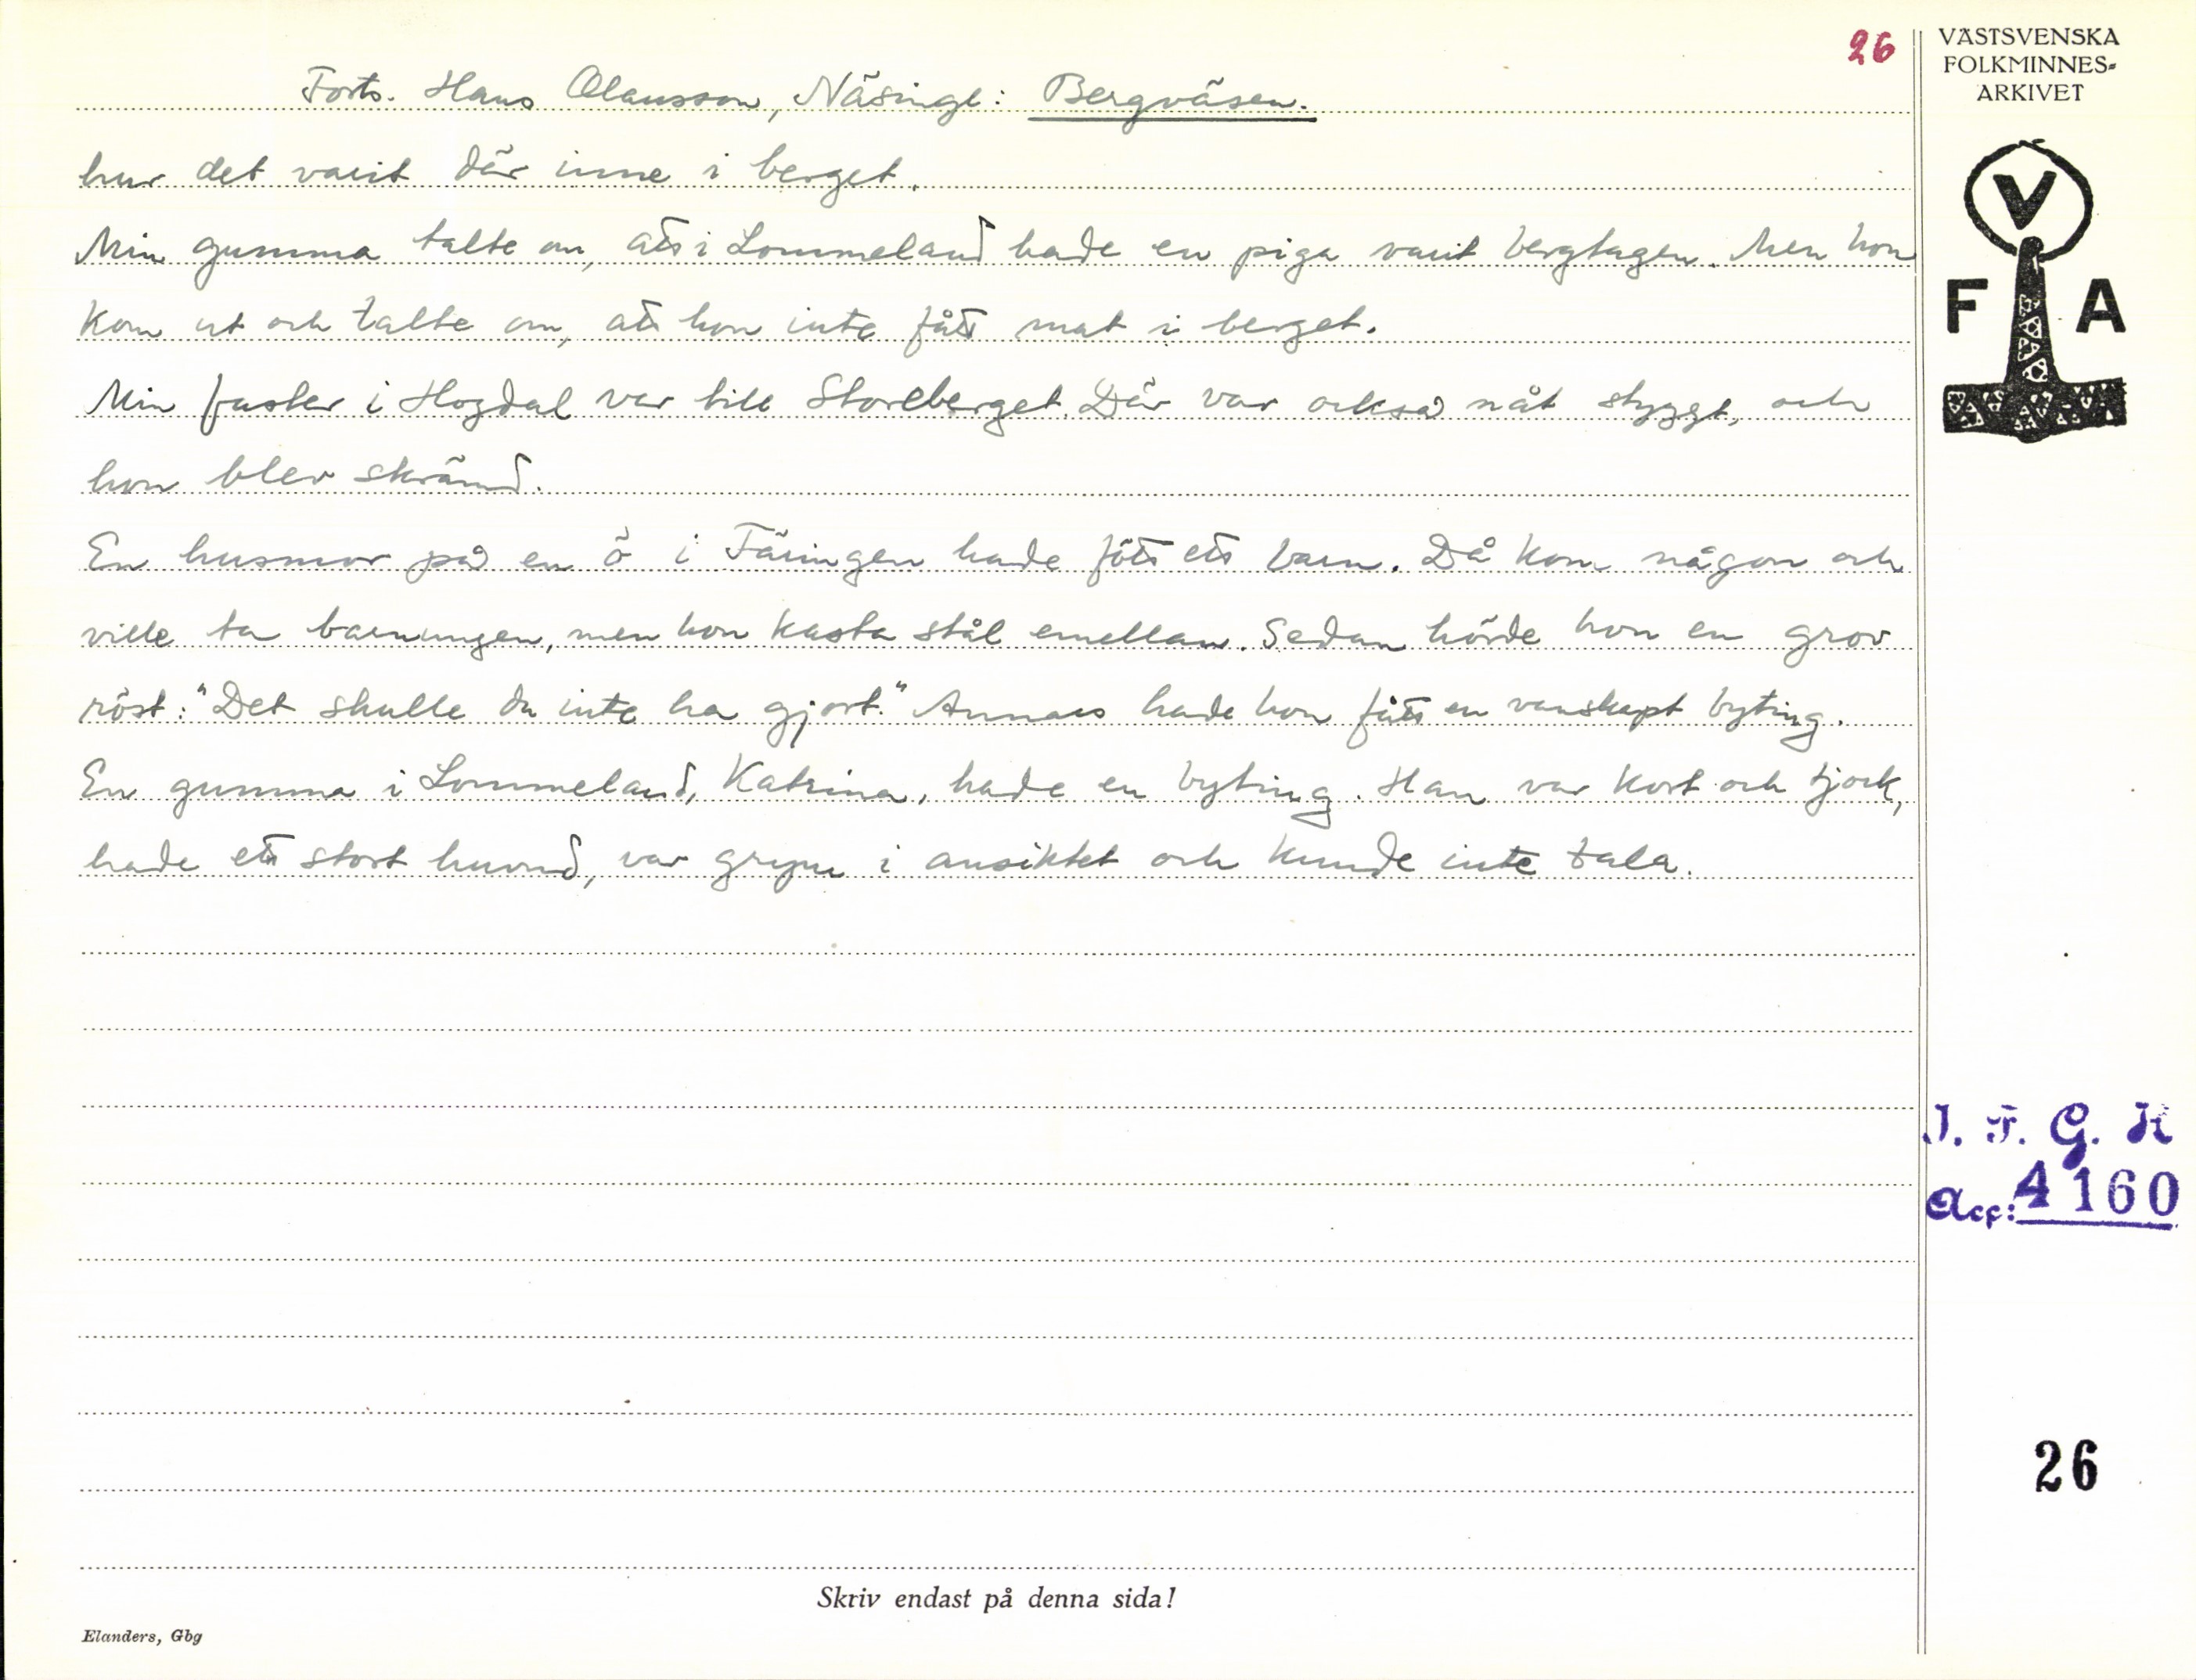 26
Forts. Hans Olausson, Näsinge: Bergväsen.
hur det varit där inne i berget.
Min gumma talte om, att i Lommeland hade en piga varit bergtagen. Men hon
kom ut och talte om, att hon inte fått mat i berget.
Min faster i Hogdal var till Storeberget. Där var också nåt styggt, och
hon blev skrämd.
En husmor på en ö i Färingen hade fött ett barn. Då kom någon och
ville ta barnungen, men hon kasta stål emellan. Sedan hörde hon en grov
röst: "Det skulle du inte ha gjort." Annars hade hon fått en vanskapt byting.
En gumma i Lommeland, Katrina, hade en byting. Han var kort och tjock,
hade ett stort huvud, var grym i ansiktet och kunde inte tala.
VÄSTSVENSKA
FOLKMINNES-
ARKIVET
V
F A
I. F. G. H
Acc: 4160
26
Skriv endast på denna sida!
Elanders, Gbg